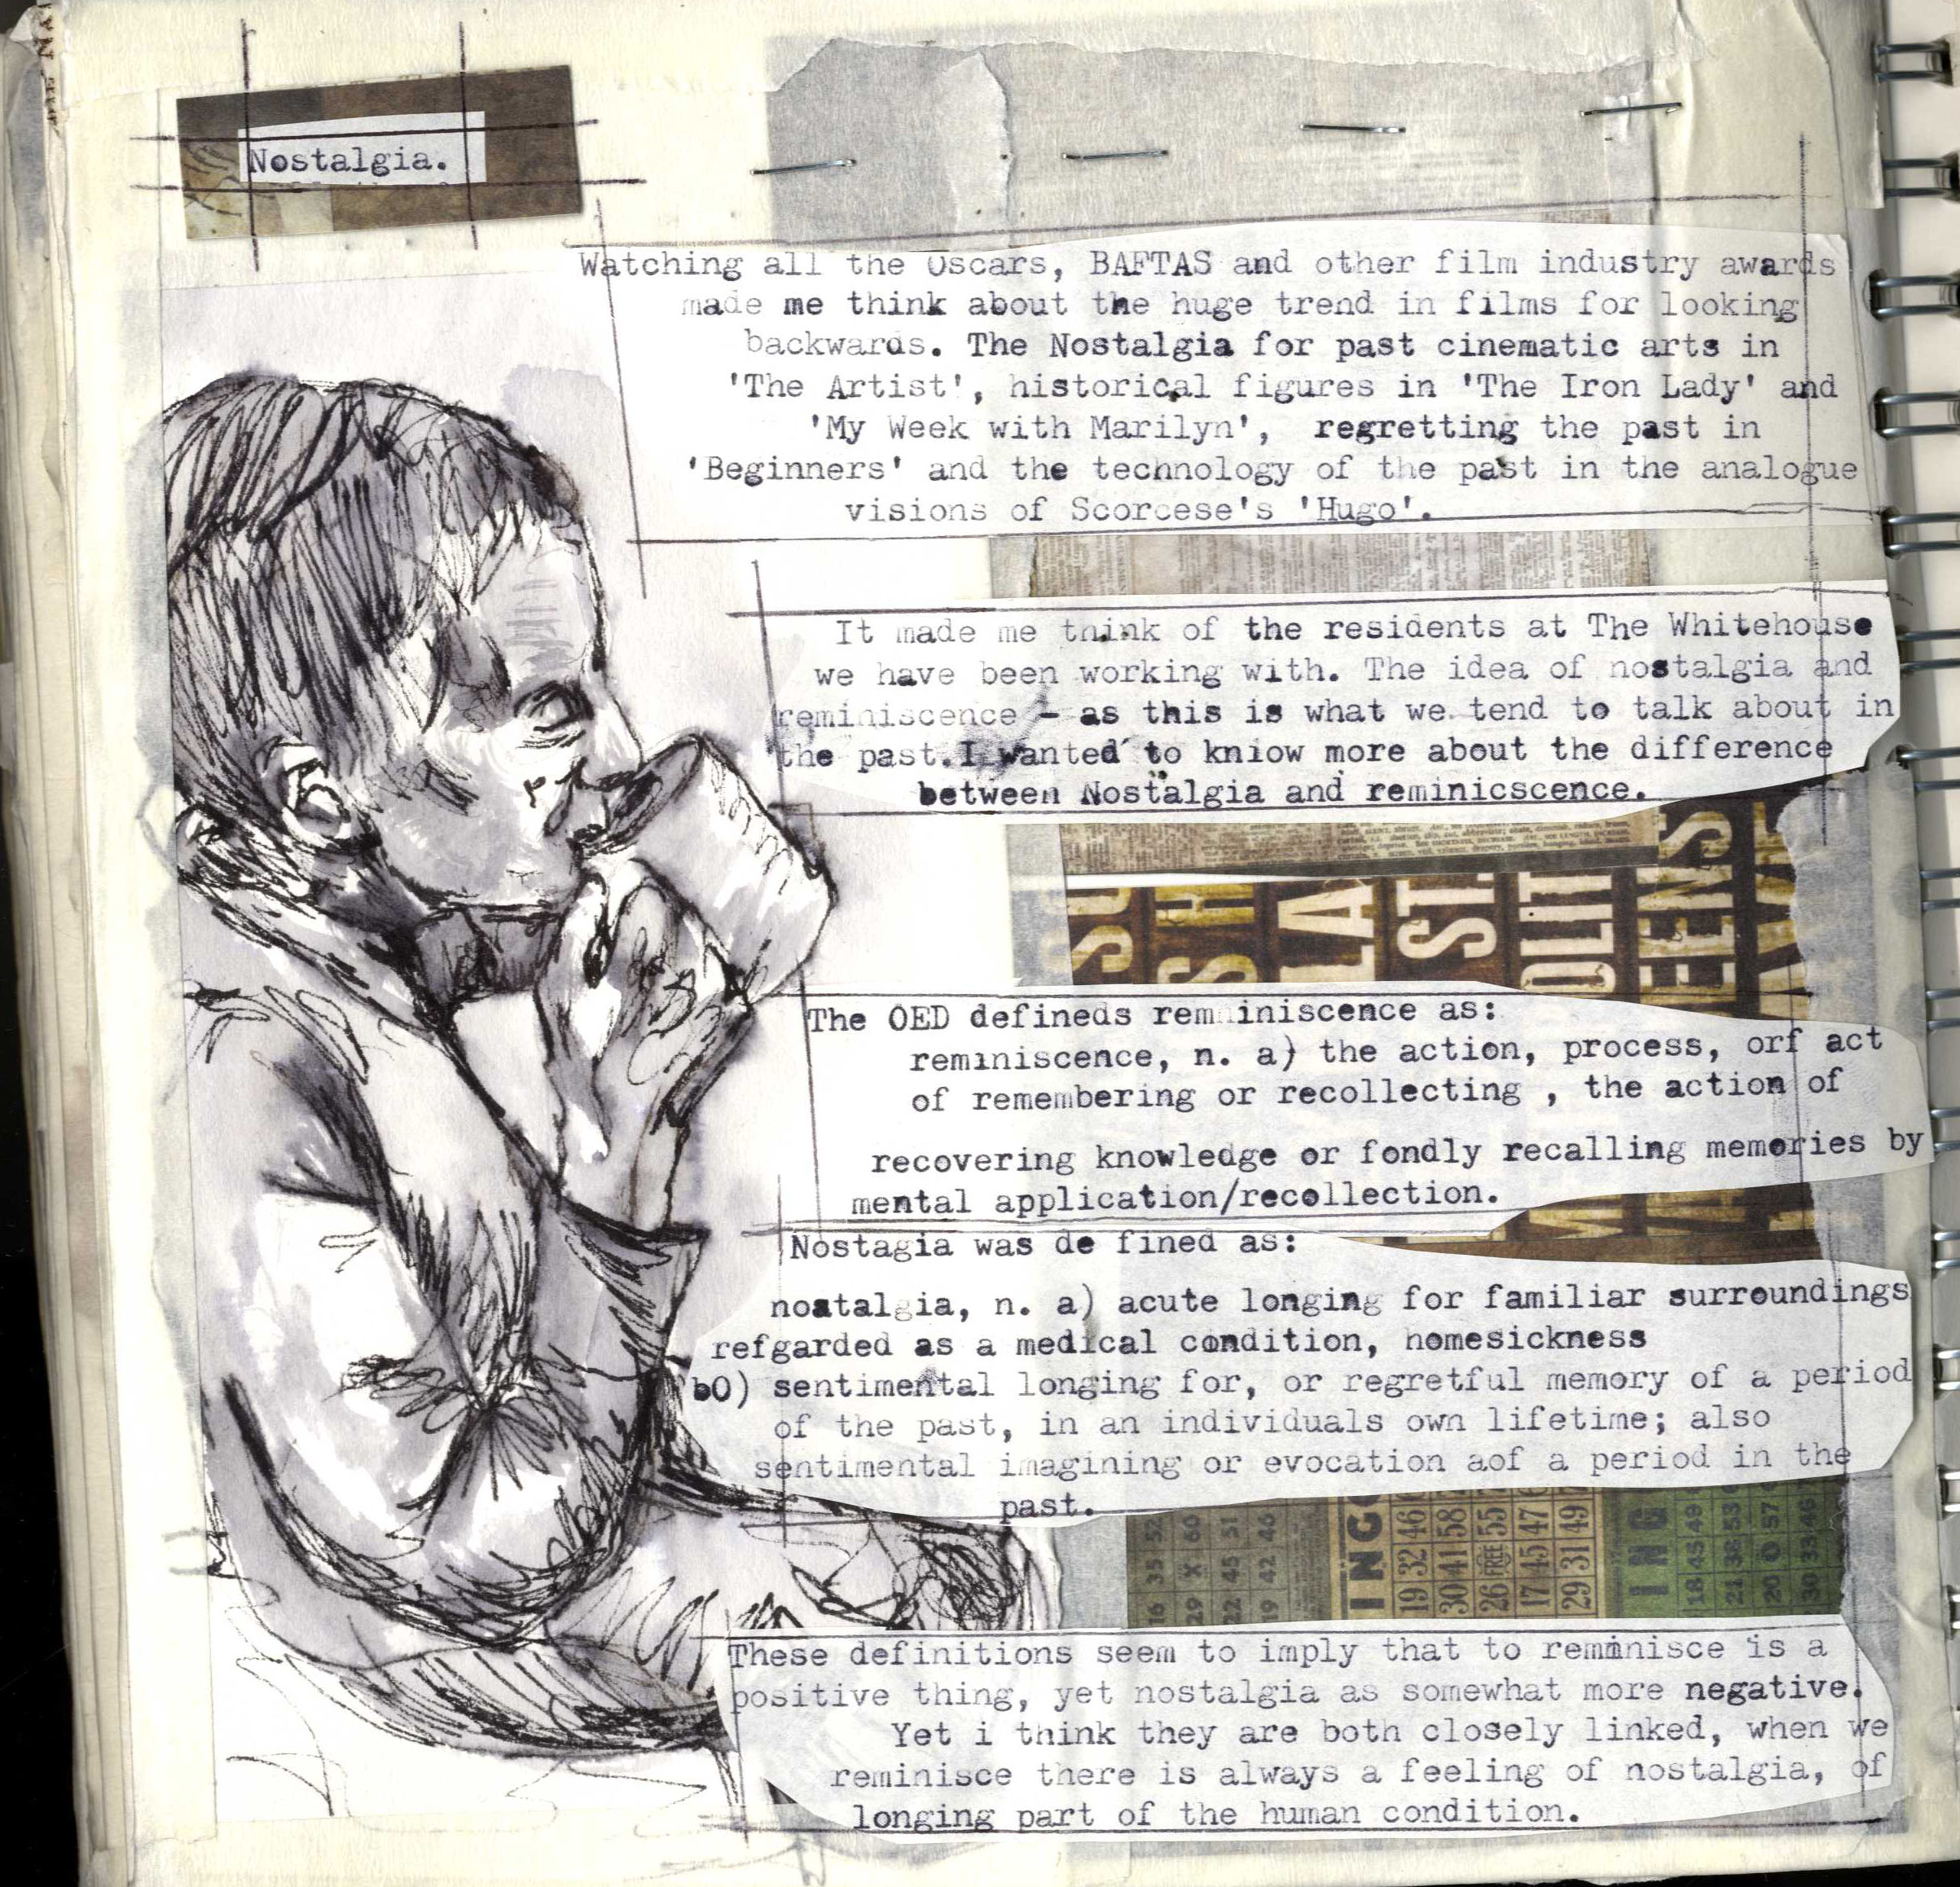 Nostalgia.
Watching all the Oscars, BAFTAS and other film industry awards
made me think about the huge trend in films for looking
backwards. The Nostalgia for past cinematic arts in
'The Artist', historical figures in 'The Iron Lady' and
'My Week with Marilyn', regretting the past in
'Beginners' and the technology of the past in the analogue
visions of Scorcese's 'Hugo'.
It made me think of the residents at The Whitehouse
we have been working with. The idea of nostalgia and
reminiscence - as this is what we tend to talk about in
the past. I wanted to kniow more about the difference
between Nostalgia and reminicscence.
SU
SH
LA
ST
OLIT
EENS
The OED defineds reminiscence as:
reminiscence, n. a) the action, process, orf act
of remembering or recollecting , the action of
recovering knowledge or fondly recalling memories by
mental application/recollection.
Nostagia was de fined as:
noatalgia, n. a) acute longing for familiar surroundings
refgarded as a medical condition, homesickness
b0) sentimental longing for, or regretful memory of a period
of the past, in an individuals own lifetime; also
sentimental imagining or evocation aof a period in the
past.
16 35 52
29 X 60
22 45 51
19 42 46
INGO
19 32 46
30 41 58
26 FREE 55
17 45 47
29 31 49
ING
18 45 49
21 38 53
20 0 57
30 33 46
These definitions seem to imply that to reminisce is a
positive thing, yet nostalgia as somewhat more negative.
Yet i think they are both closely linked, when we
reminisce there is always a feeling of nostalgia, of
longing part of the human condition.